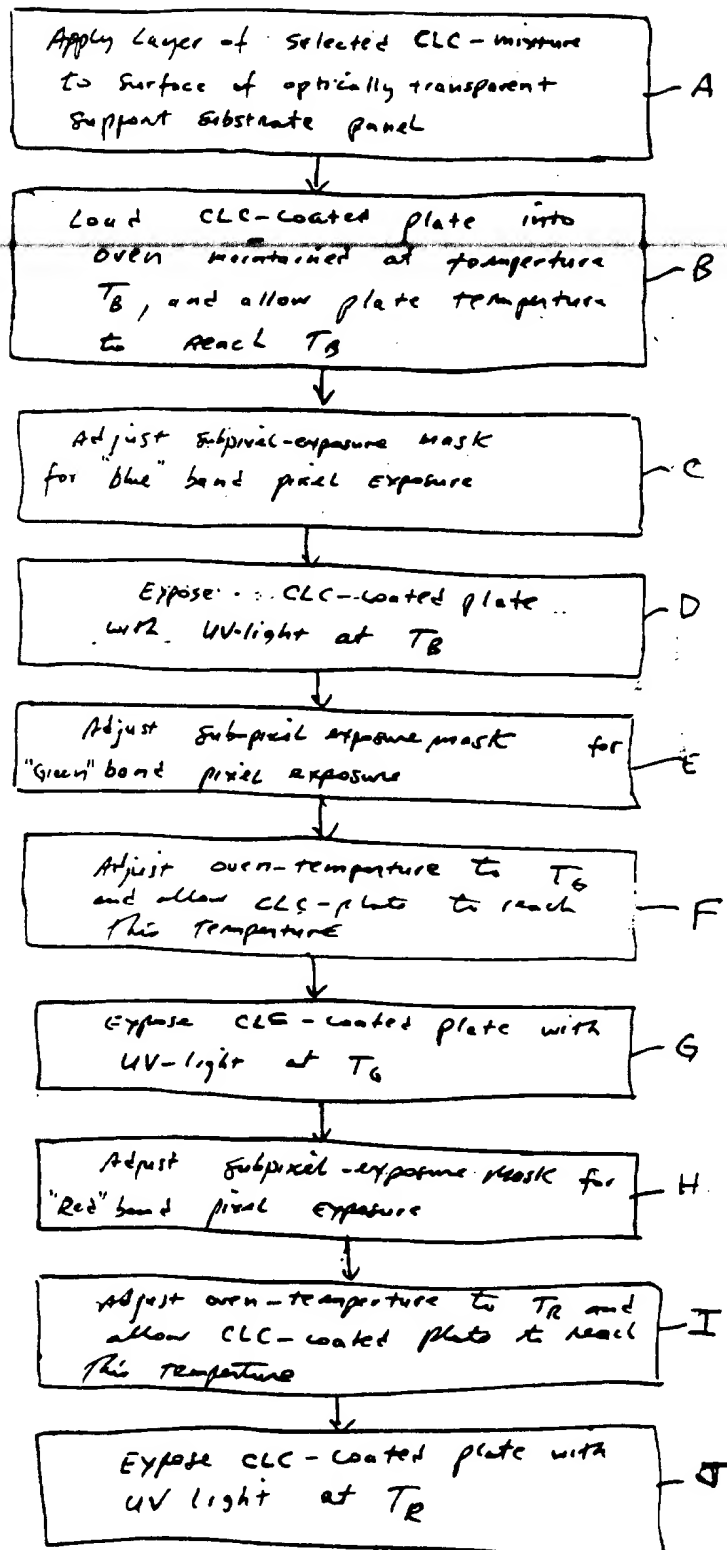 Apply Layer of Selected CLC-mixture
to Surface of optically transparent
Support Substrate panel
A
Load CLC-coated plate into
oven maintained at tomperture
T_B, and allow plate temperture
to reach T_B
B
Adjust subpixel-exposure mask
for "blue" band pixel Exposure
C
Expose CLC-coated plate
with UV-light at T_B
D
Adjust sub-pixel exposure mask for
"Green" band pixel exposure
E
Adjust oven-temperture to T_G
and allow CLC-plate to reach
This Temperture
F
Expose CLC-coated plate with
UV-light at T_G
G
Adjust subpixel-exposure Mask for
"Red" band pixel Exposure
H
Adjust oven-temperture to T_R and
allow CLC-coated plate to reach
This Temperture
I
Expose CLC-coated plate with
UV light at T_R
J